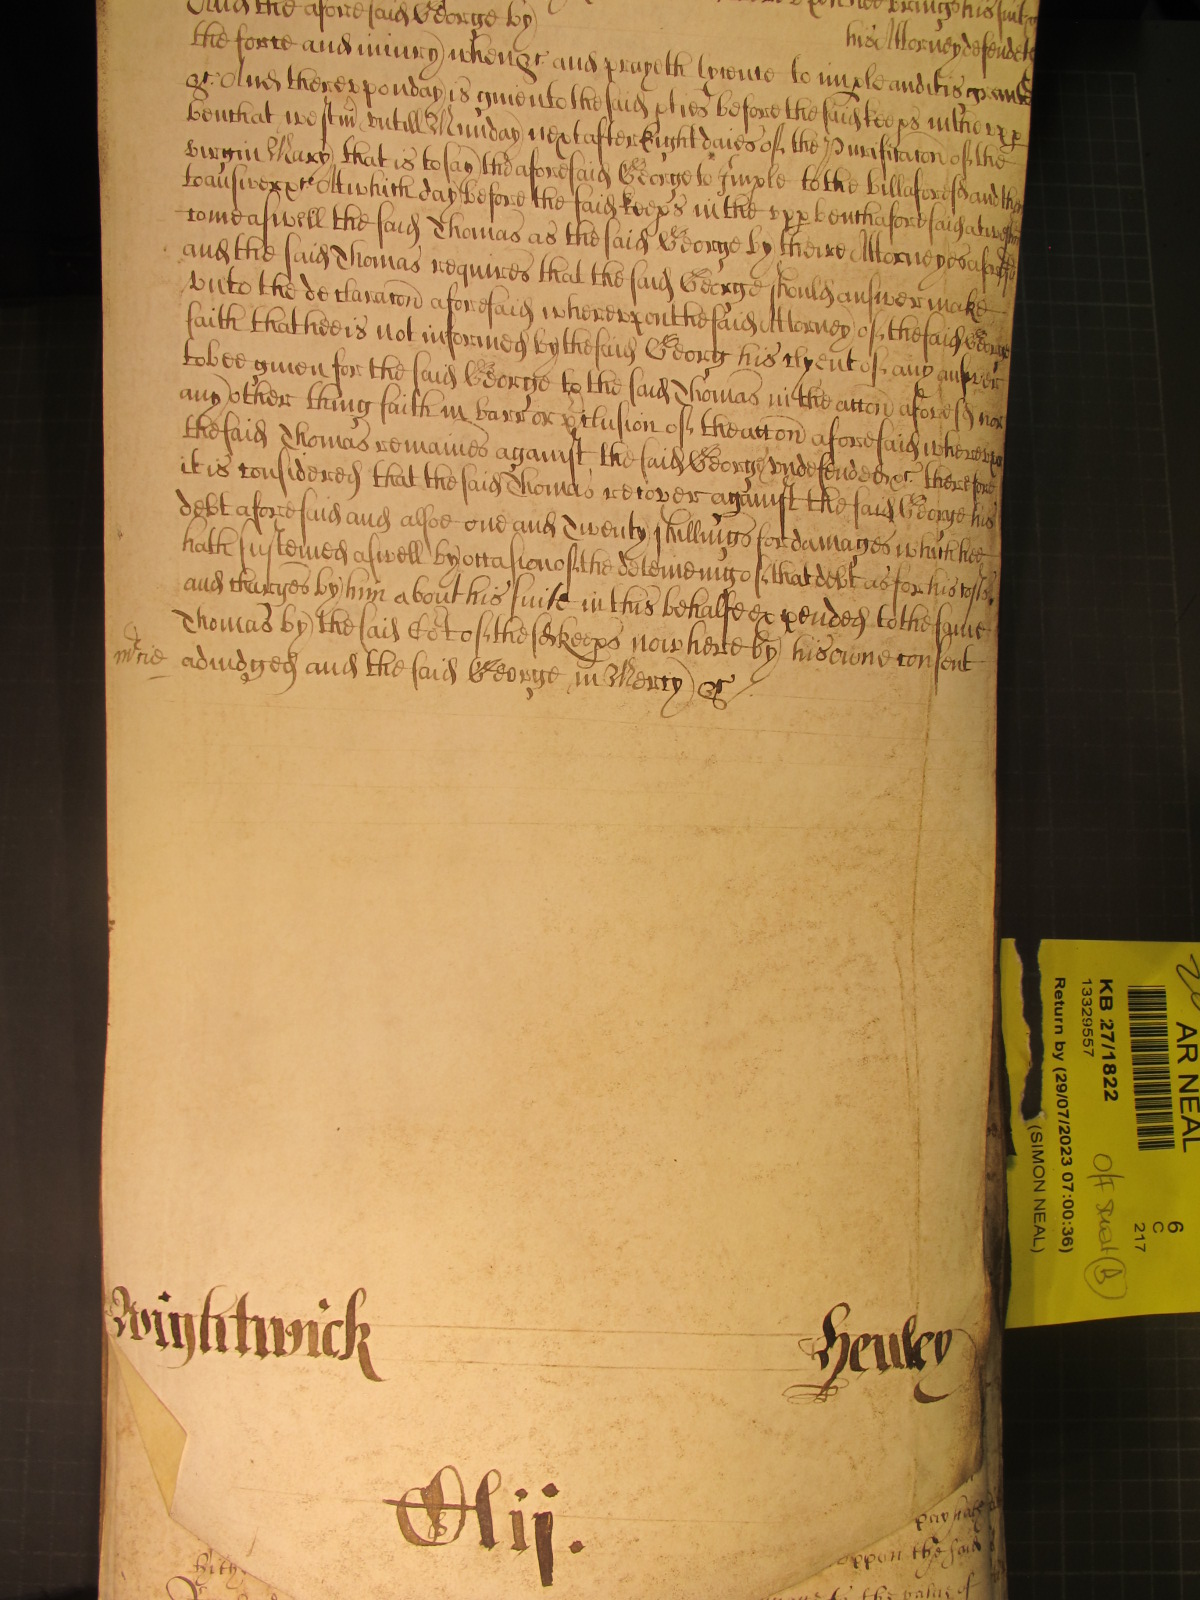 And the aforesaid George by
his Attorney defendeth
the force and iniury when &c and prayeth lycence to imple and it is graunted
&c And thereuppon day is giuen to the said pties before the said keeps in the vpp
bench at westm vntill Munday next after Eight daies of the Purificacon of the
virgin Mary that is to say the aforesaid George to Imple to the bill aforesd and then
to answer &c At which day before the said keeps in the vpp bench aforesaid at westm
come aswell the said Thomas as the said George by theire Attorneyes aforesd
and the said Thomas requires that the said George should answer make
vnto the declaracon aforesaid whereuppon the said Attorney of the said George
saith that hee is not informed by the said Georg his clyent of any answer
to bee giuen for the said George to the said Thomas in the accon aforesd nor
any other thing saith in barr or pclusion of the accon aforesaid whereby
the said Thomas remaines against the said George vndefended &c therefore
it is considered that the said Thomas recover against the said George his
debt aforesaid and alsoe one and Twenty shillings for damages which hee
hath susteined aswell by occasion of the deteineing of that debt as for his costs
and charges by him about his suite in this behalfe expended to the same
Thomas by the said Cort of the sd keeps now here by his owne consent
mcie adiudged and the said George in Mercy &c
Wightwick
Henley
Olij.
uppon the said
to the value of
AR NEAL
6
C
217
KB 27/1822
13329557
Return by (29/07/2023 07:00:36)
(SIMON NEAL)